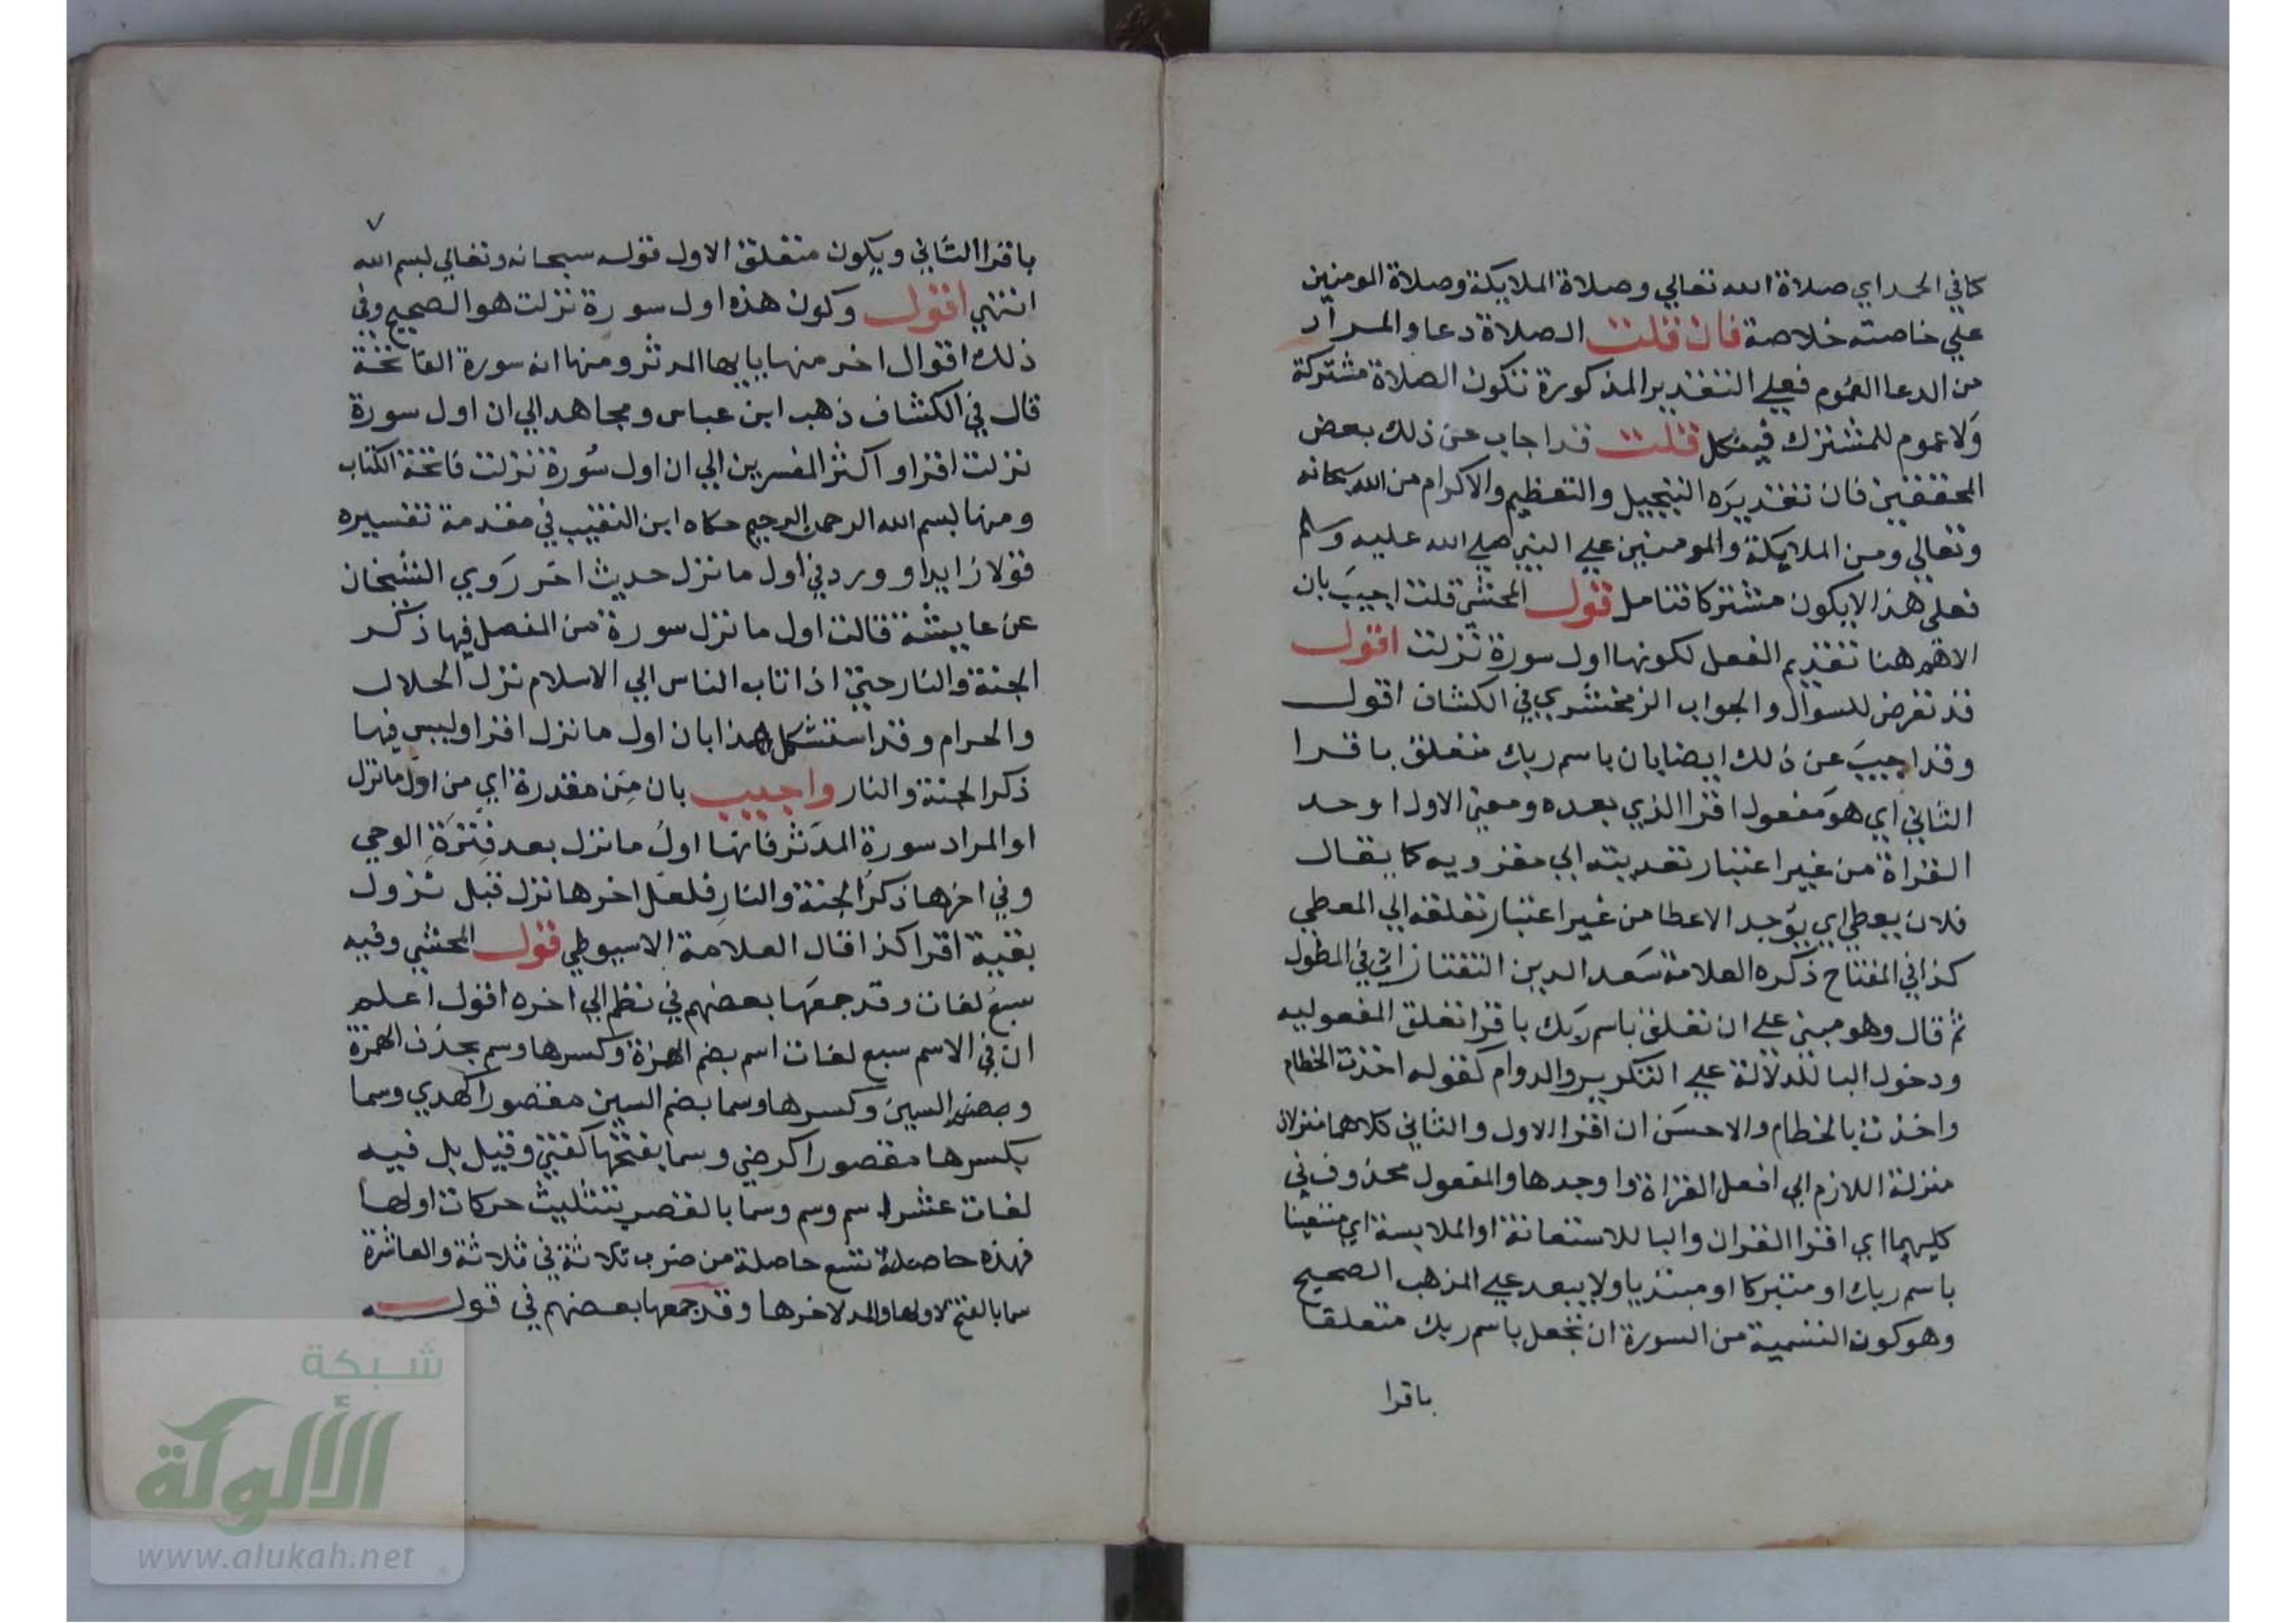 كما في الحمد اي صلاة الله تعالي وصلاة الملايكة وصلاة المومنين
علي خاصته خلاصة فان قلت الصلاة دعا والمراد
من الدعا العموم فعلي التقدير المذكورة تكون الصلاة مشتركة
ولا عموم للمشترك فيشكل قلت قد اجاب عن ذلك بعض
المحققين فان تقديره التبجيل والتعظيم والاكرام من الله سبحانه
وتعالي ومن الملايكة والمومنين علي النبي صلي الله عليه وسلم
فعلي هذا لا يكون مشتركا فتامل قول المحشي قلت اجيب بان
الاهم هنا تقديم الفعل لكونها اول سورة نزلت اقول
قد تعرض للسوال والجواب الزمخشري في الكشاف اقول
وقد اجيب عن ذلك ايضا بان باسم ربك متعلق باقرا
الثاني اي هو مفعول اقرا الذي بعده ومعني الاول اوجد
القراة من غير اعتبار تعديته الي مقرو به كما يقال
فلان يعطي اي يوجد الاعطا من غير اعتبار تعلقه الي المعطي
كذا في المفتاح ذكره العلامة سعد الدين التفتازاني في المطول
ثم قال وهو مبني علي ان تعلق باسم ربك باقرا تعلق المفعوليه
ودخول البا للدلالة علي التكرير والدوام كقوله اخذت الخطام
واخذت بالخطام والاحسن ان اقرا الاول والثاني كلاهما منزلان
منزلة اللازم اي افعل القراة واوجدها والمفعول محذوف في
كليهما اي اقرا القران والبا للاستعانة او الملابسة اي مستعينا
باسم ربك او متبركا او مبتديا ولا يبعد علي المذهب الصحيح
وهو كون التسمية من السورة ان يجعل باسم ربك متعلقا
باقرا
٧
باقرا الثاني ويكون متعلق الاول قوله سبحانه وتعالي بسم الله
انتهي اقول وكون هذه اول سورة نزلت هو الصحيح وفي
ذلك اقوال اخر منها يا ايها المدثر ومنها انه سورة الفاتحة
قال في الكشاف ذهب ابن عباس ومجاهد الي ان اول سورة
نزلت اقرا واكثر المفسرين الي ان اول سورة نزلت فاتحة الكتاب
ومنها بسم الله الرحمن الرحيم حكاه ابن النقيب في مقدمة تفسيره
قولا زايدا وورد في اول ما نزل حديث اخر روي الشيخان
عن عايشة قالت اول ما نزل سورة من المفصل فيها ذكر
الجنة والنار حتي اذا تاب الناس الي الاسلام نزل الحلال
والحرام وقد استشكل هذا بان اول ما نزل اقرا وليس فيها
ذكر الجنة والنار واجيب بان من مقدرة اي من اول ما نزل
او المراد سورة المدثر فانها اول ما نزل بعد فترة الوحي
وفي اخرها ذكر الجنة والنار فلعل اخرها نزل قبل نزول
بقية اقرا كذا قال العلامة الاسيوطي قول المحشي وفيه
سبع لغات وقد جمعها بعضهم في نظم الي اخره اقول اعلم
ان في الاسم سبع لغات اسم بضم الهمزة وكسرها وسم بحذف الهمزة
وبضم السين وكسرها وسما بضم السين مقصورا كهدي وسما
بكسرها مقصورا كرضي وسما بفتحها كفتي وقيل بل فيه
لغات عشر اسم وسم وسما بالقصر بتثليث حركات اولها
فهذه حاصلة تسع حاصلة من ضرب ثلاثة في ثلاثة والعاشرة
سما بالفتح لاولها والمد لاخرها وقد جمعها بعضهم في قوله
شبكة
الألوكة
www.alukah.net